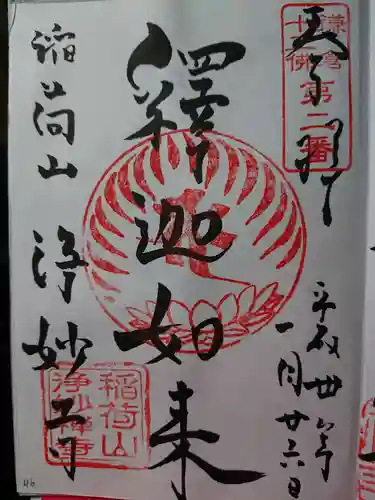 奉拝
鎌倉
十三佛
第二番
平成丗年
一月廿六日
釋迦如来
稲荷山 浄妙寺
稲荷山
浄妙禅寺